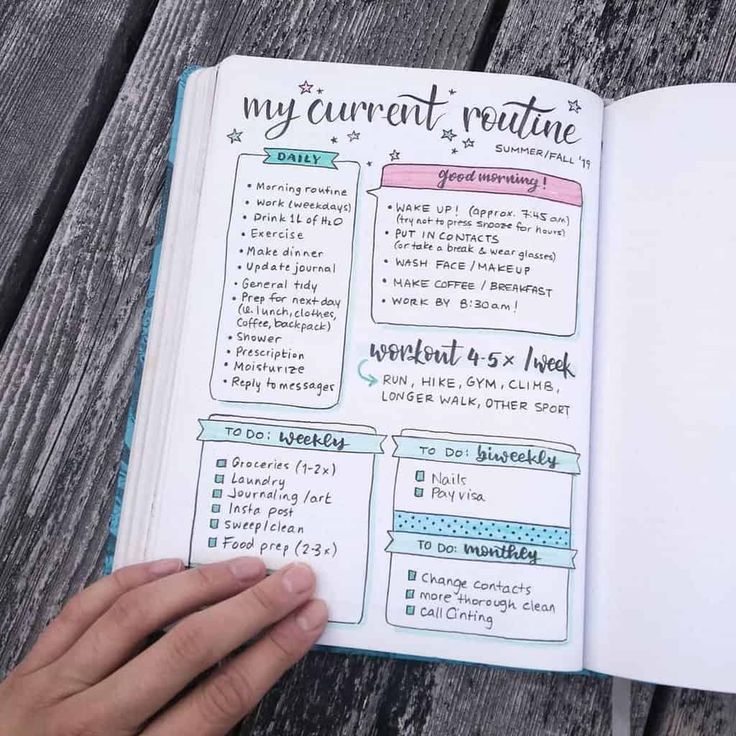 my current routine
SUMMER/FALL '19
DAILY
• Morning routine
• Work (weekdays)
• Drink 1L of H₂O
• Exercise
• Make dinner
• Update journal
• General tidy
• Prep for next day
(ie. lunch, clothes,
coffee, backpack)
• Shower
• Prescription
• Moisturize
• Reply to messages
good morning!
• WAKE UP! (approx. 7:45 am)
(try not to press snooze for hours)
• PUT IN CONTACTS
(or take a break & wear glasses)
• WASH FACE / MAKEUP
• MAKE COFFEE / BREAKFAST
• WORK BY 8:30am!
workout 4-5x /week
RUN, HIKE, GYM, CLIMB,
LONGER WALK, OTHER SPORT
TO DO: weekly
Groceries (1-2x)
Laundry
Journaling/art
Insta post
Sweep/clean
Food prep (2-3x)
TO DO: biweekly
Nails
Pay visa
TO DO: monthly
Change contacts
more thorough clean
call Cinting